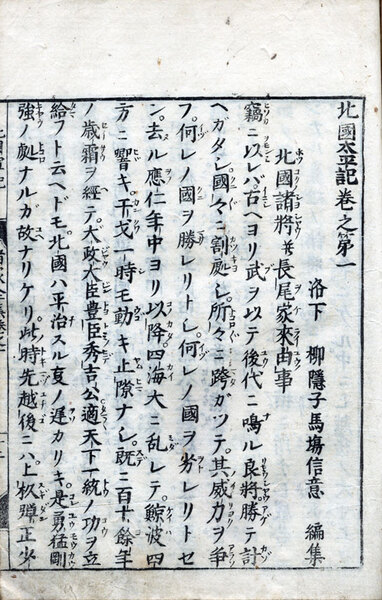 北國太平記巻之第一
洛下 柳隱子馬塲信意 編集
北國諸將并長尾家來由事
竊ニ以レバ古ヘヨリ武ヲ以テ後代ニ鳴ル良將勝テ計
ヘガタシ國々ニ割處シ所々ニ跨ガツテ其威力ヲ争
フ何レノ國ヲ勝レリトシ何レノ國ヲ劣レリトセ
ン去ル應仁年中ヨリ以降四海大ニ乱レテ鯨波四
方ニ響キ干戈一時モ動キ止隙ナシ既ニ百十餘年
ノ歳霜ヲ經テ大政大臣豊臣秀吉公適天下一統ノ功ヲ立
給フト云ヘドモ北國ハ平治スル亊ノ遅カリキ是勇猛剛
強ノ處ナルガ故ナリケリ此時先越後ニハ上杦彈正少